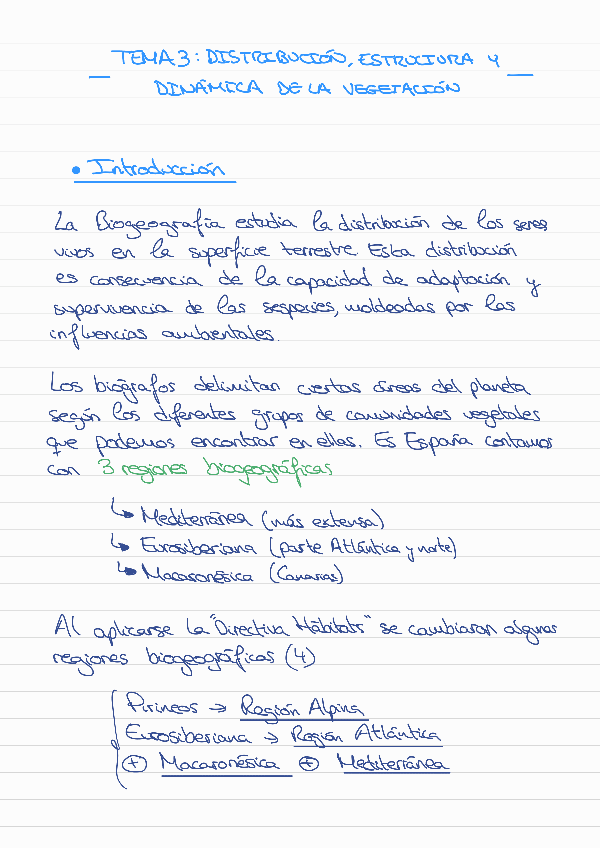 TEMA 3: DISTRIBUCIÓN, ESTRUCTURA Y
DINÁMICA DE LA VEGETACIÓN
• Introducción
La Biogeografía estudia la distribución de los seres
vivos en la superficie terrestre. Esta distribución
es consecuencia de la capacidad de adaptación y
supervivencia de las sespecies, moldeadas por las
influencias ambientales.
Los biógrafos delimitan ciertas áreas del planeta
según los diferentes grupos de comunidades vegetales
que podemos encontrar en ellas. Es España contamos
con 3 regiones biogeográficas
↳ Mediterránea (más extensa)
↳ Eurosiberiana (parte Atlántica y norte)
↳ Macaronésica (Canarias)
Al aplicarse la "Directiva Hábitats" se cambiaron algunas
regiones biogeográficas (4)
Pirineos → Región Alpina
Eurosiberiana → Región Atlántica
⊕ Macaronésica ⊕ Mediterránea